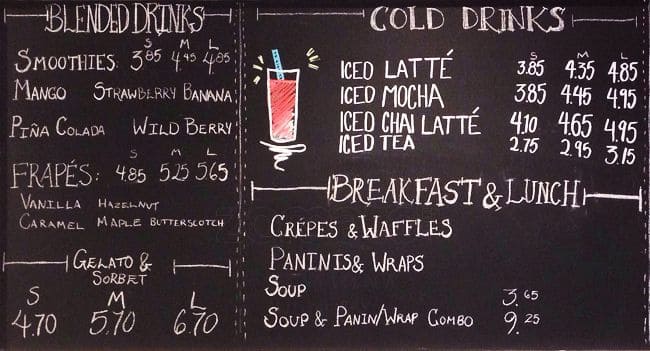 BLENDED DRINKS
S M L
SMOOTHIES: 3.85 4.45 4.85
MANGO STRAWBERRY BANANA
PIÑA COLADA WILD BERRY
S M L
FRAPÉS: 4.85 5.25 5.65
VANILLA HAZELNUT
CARAMEL MAPLE BUTTERSCOTCH
GELATO &
SORBET
S M L
4.70 5.70 6.70
COLD DRINKS
S M L
ICED LATTÉ 3.85 4.35 4.85
ICED MOCHA 3.85 4.45 4.95
ICED CHAI LATTÉ 4.10 4.65 4.95
ICED TEA 2.75 2.95 3.15
BREAKFAST & LUNCH
CRÉPES & WAFFLES
PANINIS & WRAPS
SOUP 3.65
SOUP & PANIN/WRAP COMBO 9.25